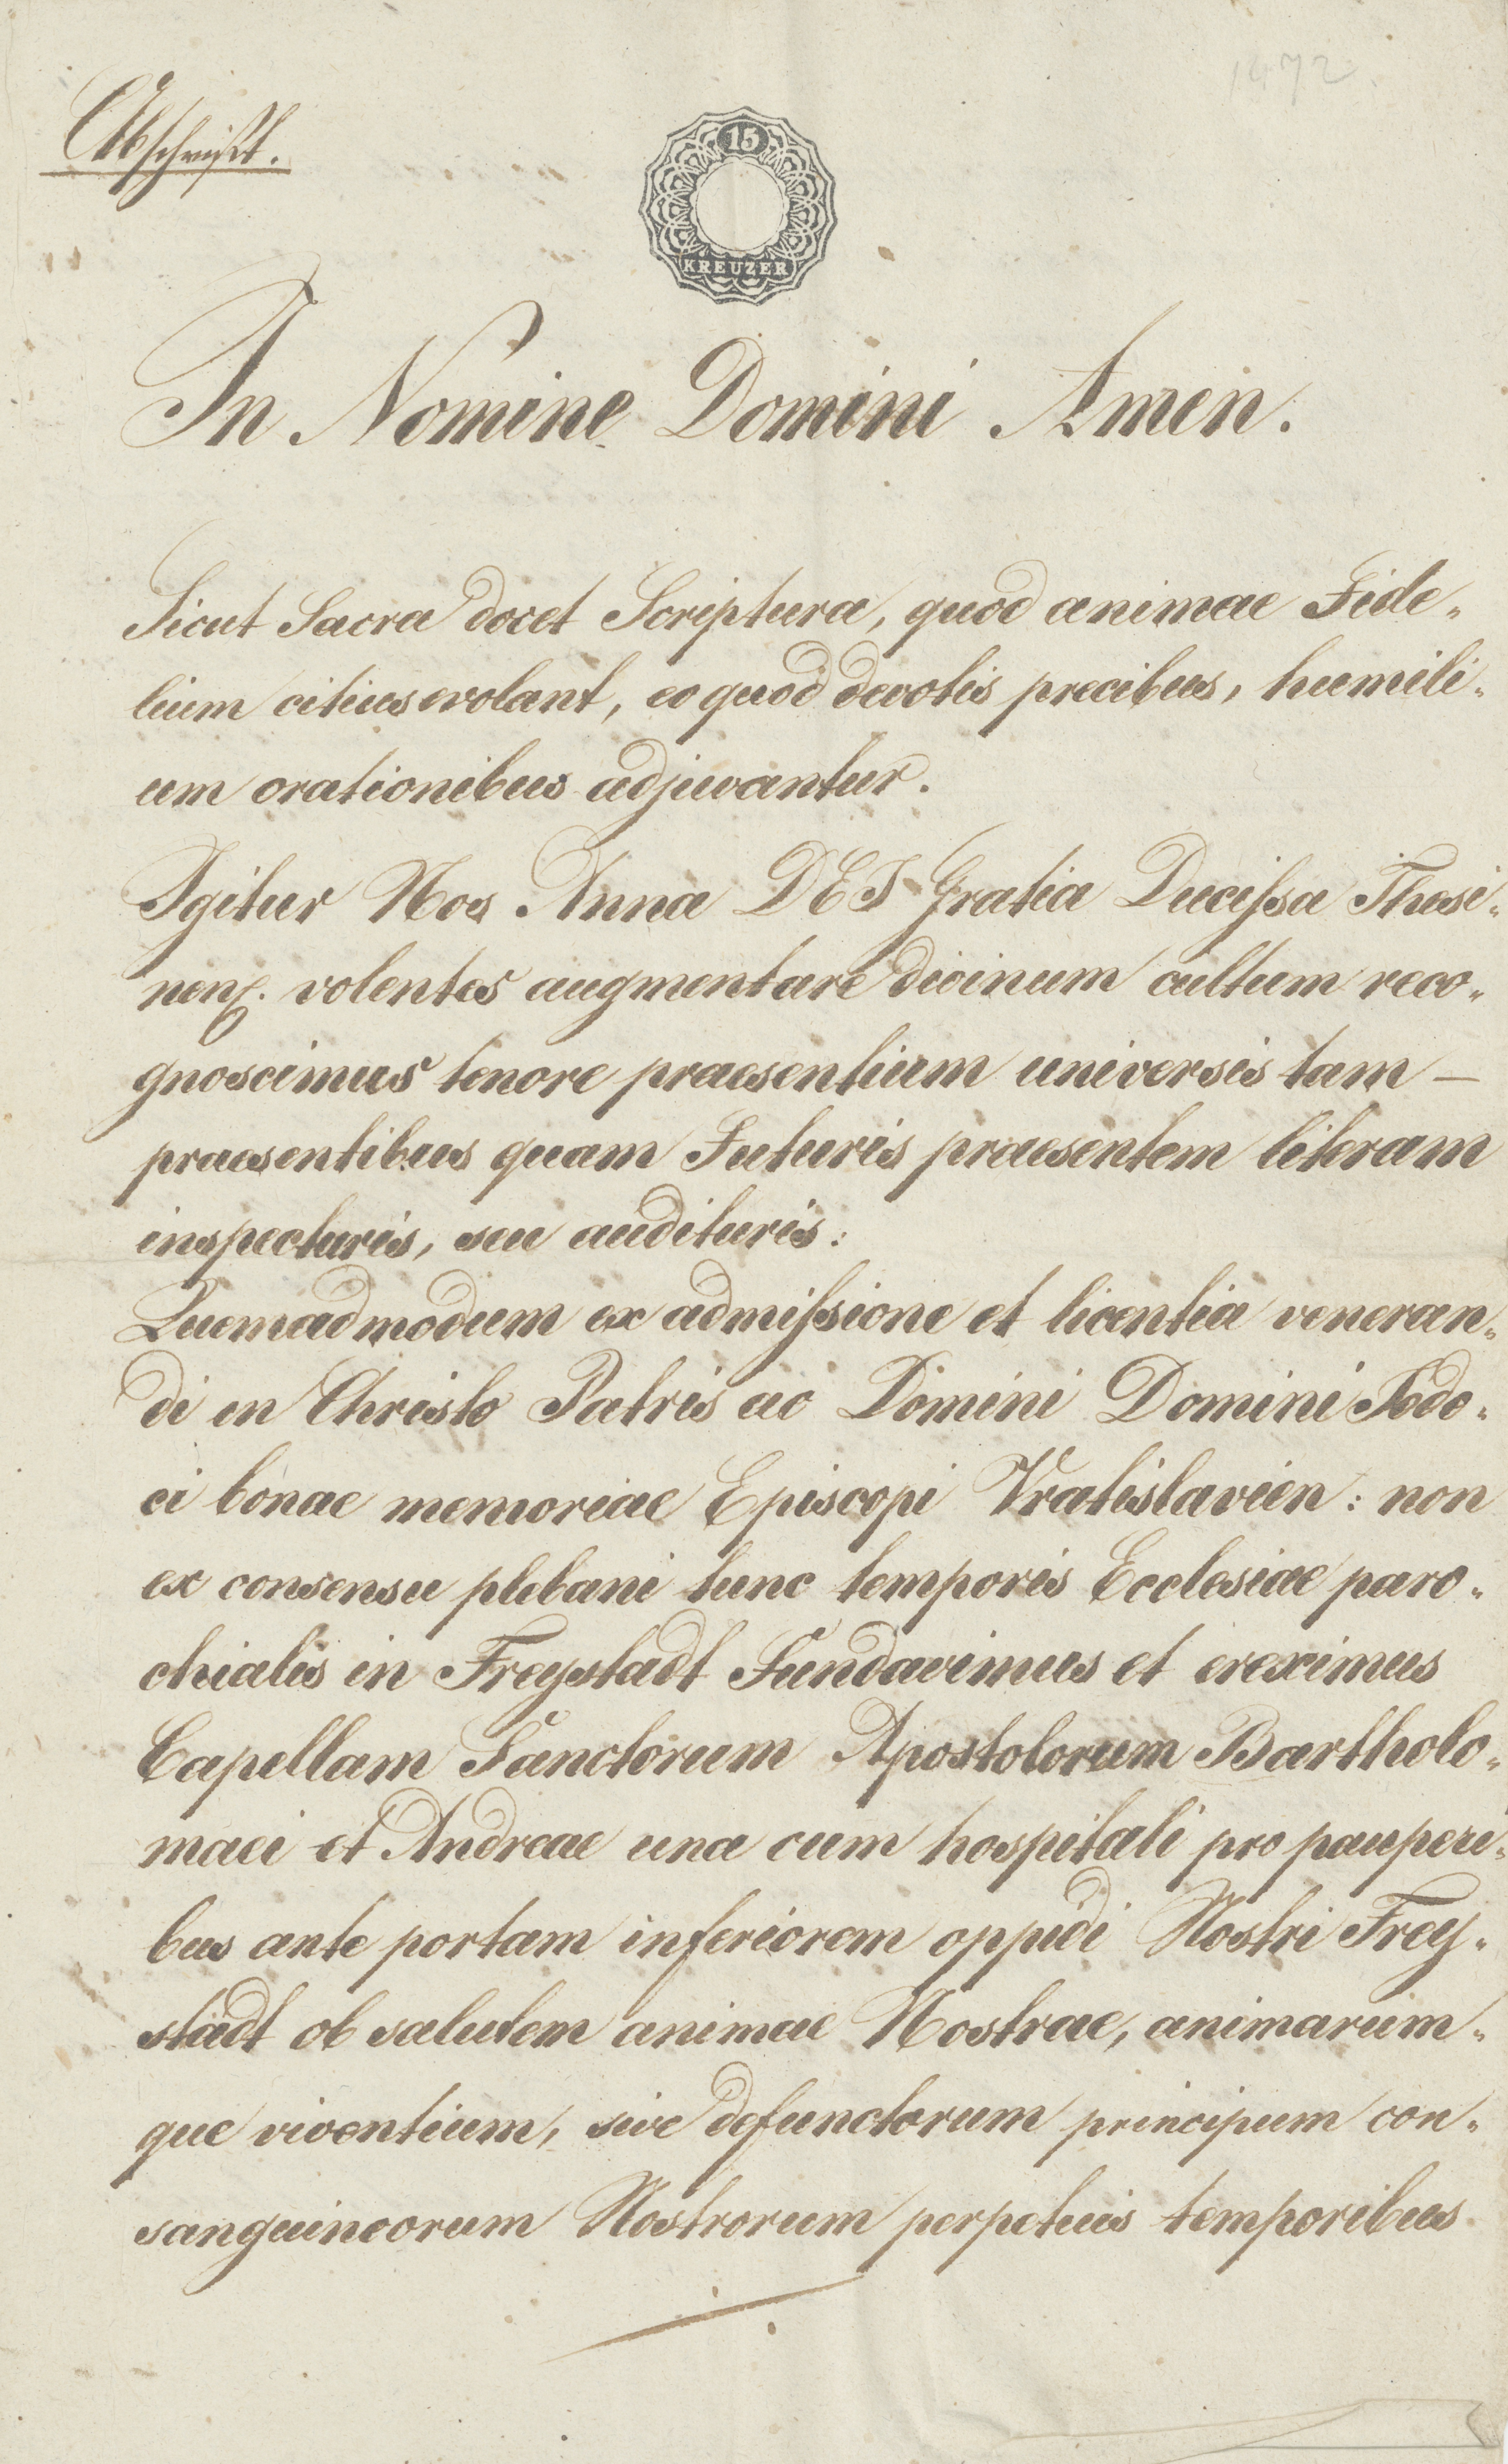 1472
Abschrift.
15
KREUZER
In Nomine Domini Amen.
Sicut Sacra docet Scriptura, quod animae Fide„
lium citius evolant, eo quod devotis precibus, humili„
um orationibus adjuvantur.
Igitur Nos Anna DEI Gratia Ducissa Thesi„
nens. volentes augmentare divinum cultum reco„
gnoscimus tenore praesentium universis tam —
praesentibus quam Futuris praesentem literam
inspecturis, seu audituris:
Quemadmodum ex admissione et licentia veneran„
di in Christo Patris ac Domini Domini Jodo„
ci bonae memoriae Episcopi Vratislavien: non
ex consensu plebani tunc temporis Ecclesiae paro„
chialis in Freystadt Fundavimus et ereximus
Capellam Sanctorum Apostolorum Bartholo„
maei et Andreae una cum hospitali pro pauperi„
bus ante portam inferiorem oppidi Nostri Frey„
stadt ob salutem animae Nostrae, animarum„
que viventium, sive defunctorum principum con„
sanguineorum Nostrorum perpetuis temporibus